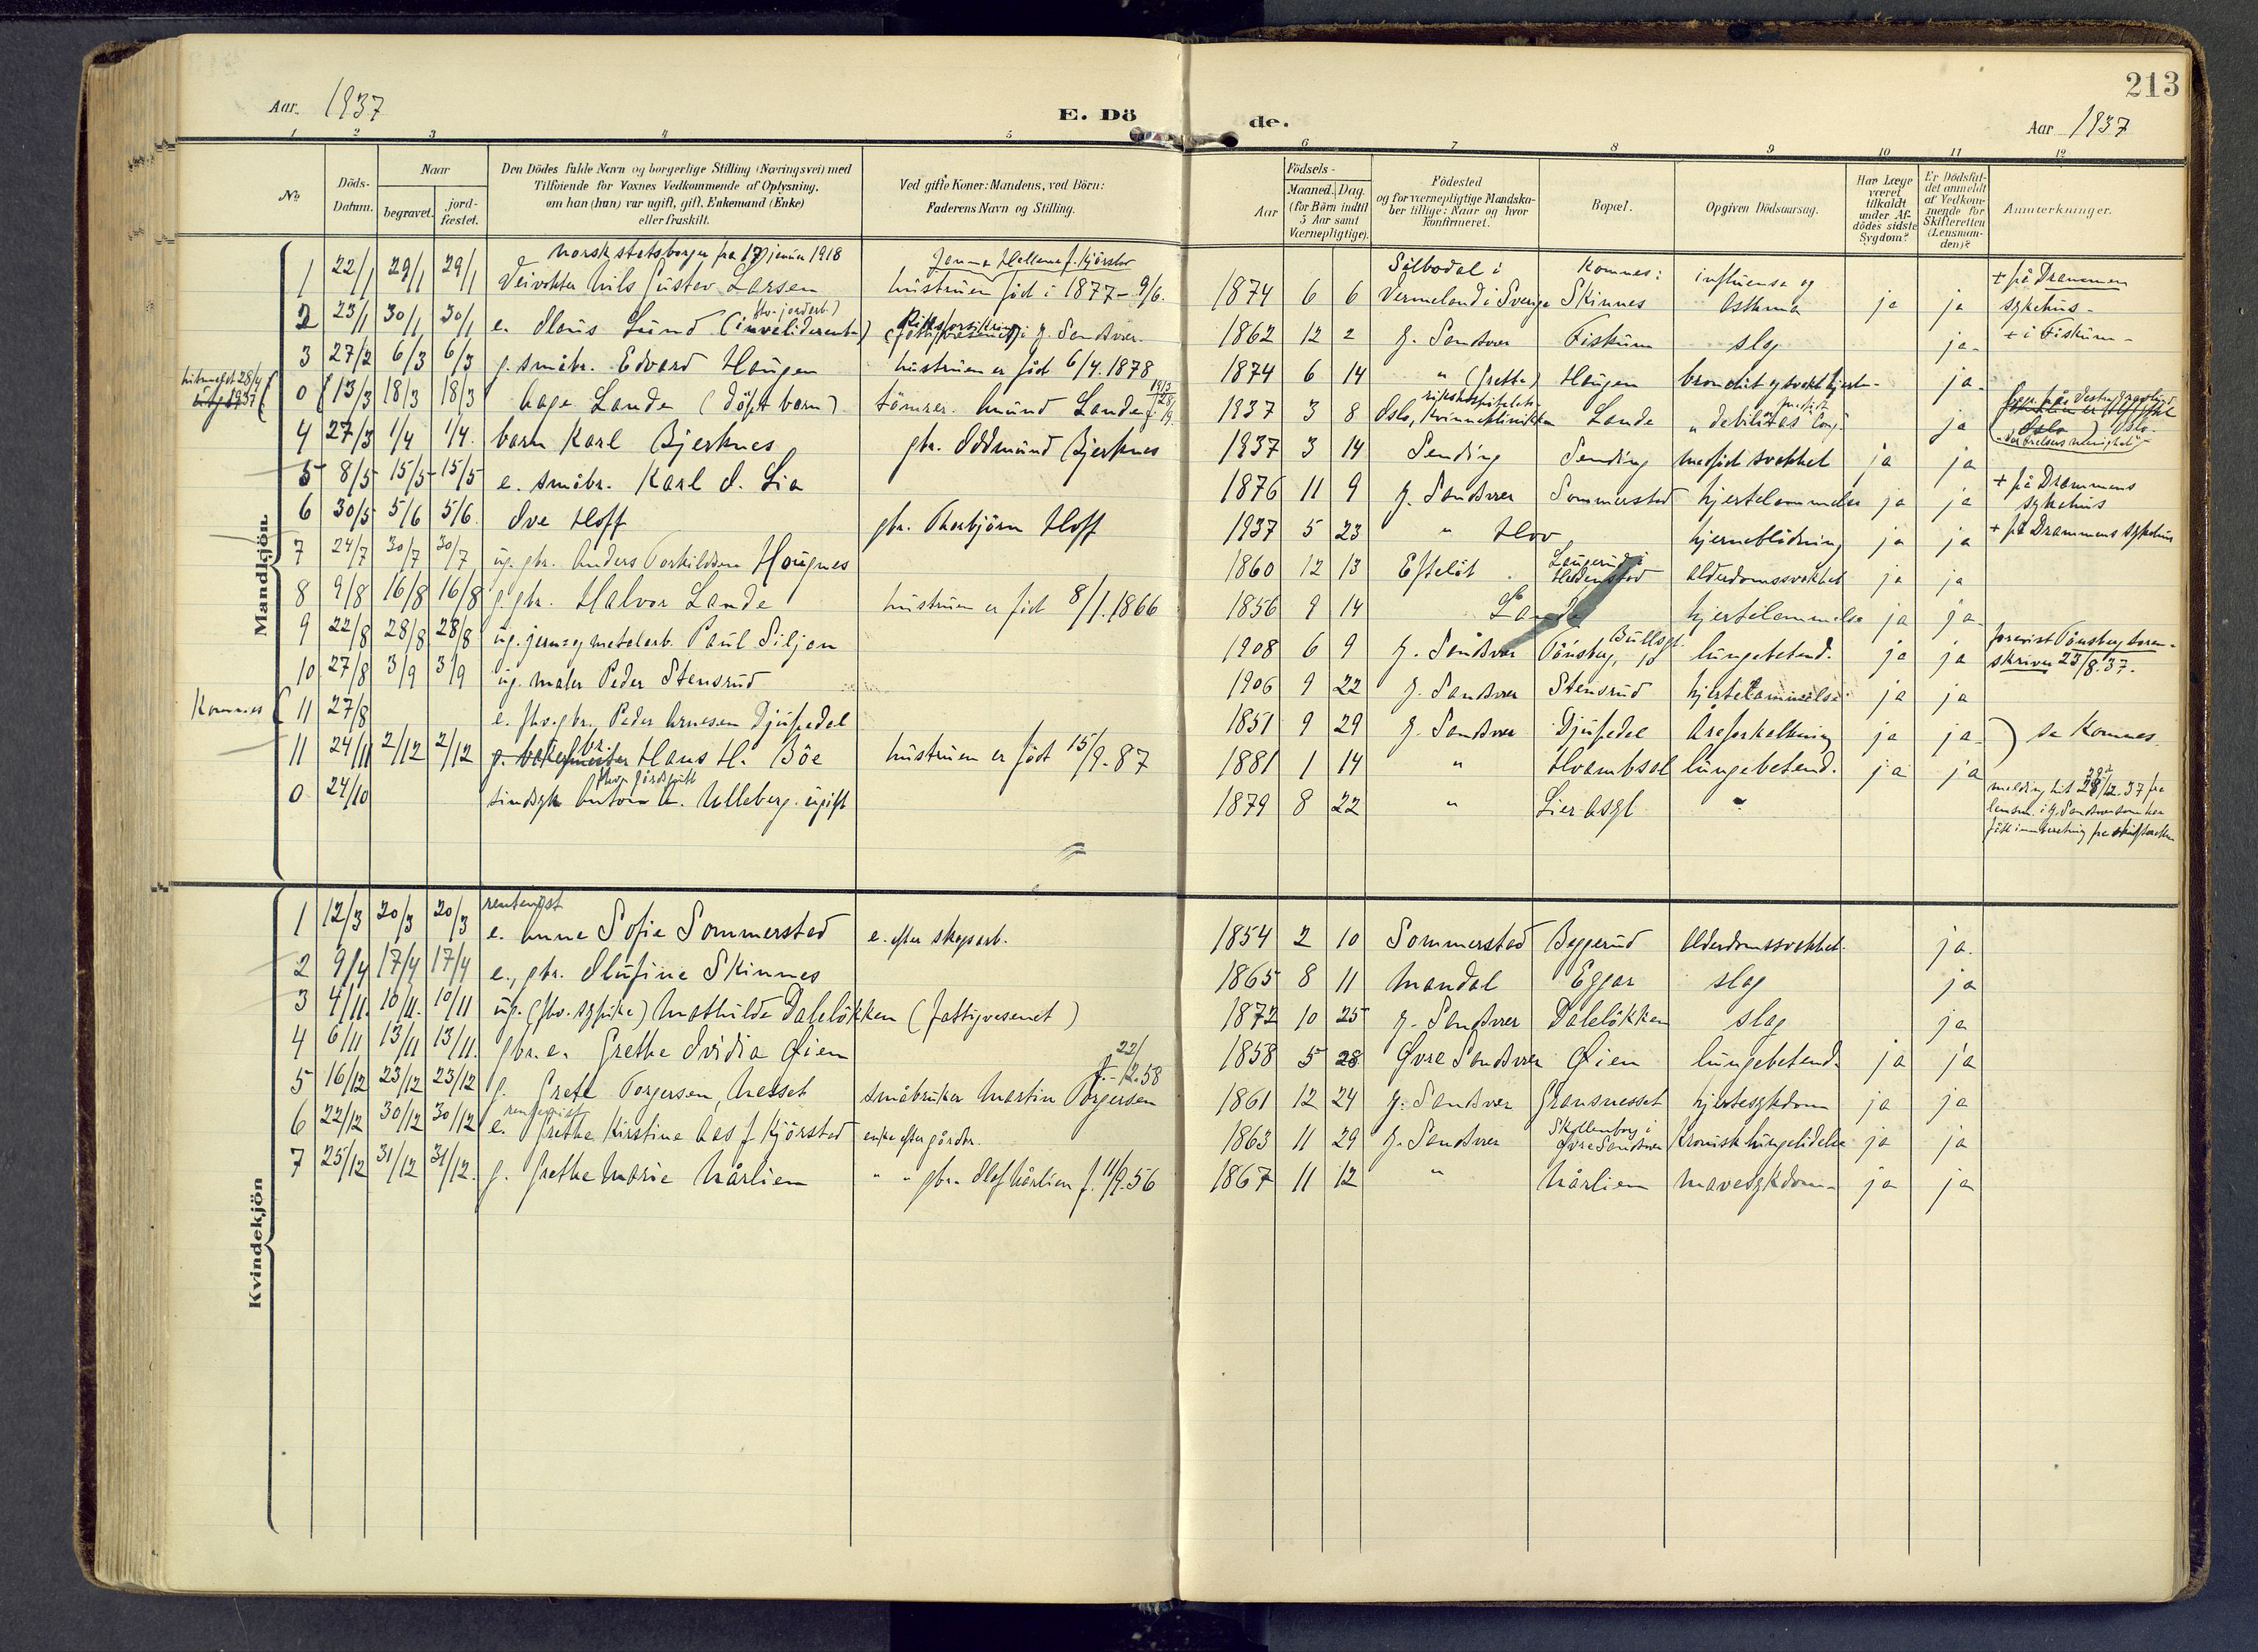 213
Aar 1937
E. Dö
de.
Aar 1937
1 2 3 4 5 6 7 8 9 10 11 12
No.
Döds-Datum.
Naar
begravet.
jord-fæstet.
Den Dödes fulde Navn og borgerlige Stilling (Næringsvei) med
Tilföiende for Voxnes Vedkommende af Oplysning,
om han (hun) var ugift, gift, Enkemand (Enke)
eller fraskilt.
Ved gifte Koner: Mandens, ved Börn:
Faderens Navn og Stilling.
Födsels-
Aar
Maaned. Dag.
(for Börn indtil
5 Aar samt
Værnepligtige).
Födested
og for værnepligtige Mandska-
ber tillige: Naar og hvor
Konfirmeret.
Bopæl.
Opgiven Dödsaarsag.
Har Læge
været
tilkaldt
under Af-
dödes sidste
Sygdom?
Er Dödsfal-
det anmeldt
af Vedkom-
mende for
Skifteretten
(Lensman-
den)?
Anmærkninger.
Mandkjön.
norsk statsborger fra 17 januar 1918
1 22/1 29/1 29/1 Veivokter Nils Gustav Larsen hustruen född i 1877 - 9/6. 1874 6 6 Silbodal i Vermeland i Sverige Komnes: Skinnes influensa og Asthma ja ja + på Drammen sykehus -
2 23/1 30/1 30/1 e. Olaus Lund (invaliderente) 1862 12 2 y. Sandsvær Fiskum slag ja - + i Fiskum -
3 27/2 6/3 6/3 g. småbr. Edvard Haugen hustruen er född 6/4. 1878 1874 6 14 " Haugen ja -
0 13/3 18/3 18/3 Aage Lande (döpt barn) tömrer Amund Lande 1937 3 8 Oslo, Kvinneklinikken Lande debilitas cong. ja
4 27/3 1/4 1/4. barn Karl Bjerknes gbr. Oddmund Bjerknes 1937 3 14 Sending Sending medfödt svakhet ja ja
5 8/5 15/5 15/5 e. småbr. Karl O. Lia 1876 11 9 y. Sandsvær Sommerstad hjertelammelse ja ja + på Drammens sykehus
6 30/5 5/6 5/6. Ove Hoff gbr. Thorbjörn Hoff 1937 5 23 " Hov hjerneblödning ja ja + på Drammens sykehus
7 24/7 30/7 30/7 ug. gbr. Anders Torkildsen Haugnes 1860 12 13 Eftelöt Laugerud i Hedenstad Alderdomssvakhet ja ja
8 9/8 16/8 16/8 g. gbr. Halvor Lande hustruen er född 8/1. 1866 1856 9 14 Lande hjertelammelse ja ja -
9 22/8 28/8 28/8 ug. jern og metalarb. Paul Siljan 1908 6 9 y. Sandsvær Tönsberg, Bullsgt. 10 lungebetend. ja ja forevist Tönsberg soren-
skriver 23/8. 37.
10 27/8 3/9 3/9 ug. maler Peder Stensrud 1906 9 22 y. Sandsvær Stensrud hjertelammelse ja ja
Komnes 11 27/8 e. fhv. gbr. Peder Arnesen Djupedal 1851 9 29 y. Sandsvær Djupedal Åreforkalkning ja ja - se Komnes
11 24/11 2/12 2/12 g. Hans H. Böe hustruen er född 15/9. 87 1881 1 14 " Hvambsal lungebetend. ja ja
0 24/10 sindsyk Anton A. Ulleberg. ugift 1879 8 22 " Lier Asyl " melding hit 28/12. 37 fra
Kvindekjön
1 12/3 20/3 20/3 e. Anne Sofie Sommerstad e. efter skogsarb. 1854 2 10 Sommerstad Beggerud Alderdomssvakhet ja.
2 9/4 17/4 17/4 e., gbr. Olufine Skinnes 1865 8 11 Mandal Eggar slag ja
3 4/11. 10/11. 10/11 ug. (fhv. sypike) Mathilde Dalelökken (fattigvesenet) 1872 10 25 y. Sandsvær Dalelökken slag ja
4 6/11 13/11 13/11. gbr. e. Grethe Ovidia Öien 1858 5 28 Övre Sandsvær Öien lungebetend. ja ja
5 16/12 23/12 23/12 g. Grete Torgersen, Nesset småbruker Martin Torgersen f. 22/2. 58 1861 12 24 y. Sandsvær Gransnesset hjertesykdom ja ja
6 22/12 30/12 30/12 e. Grethe Kirstine Aas f. Kjörstad enke efter gårdbr. 1863 11 29 y. Sandsvær Skollenborg i Övre Sandsvær Kronisk lungelidelse ja ja
7 25/12 31/12 31/12. g. Grethe Marie Mårlien " " gbr. Olaf Mårlien f. 11/9. 56 1867 11 12 " Mårlien mavesykdom - ja ja